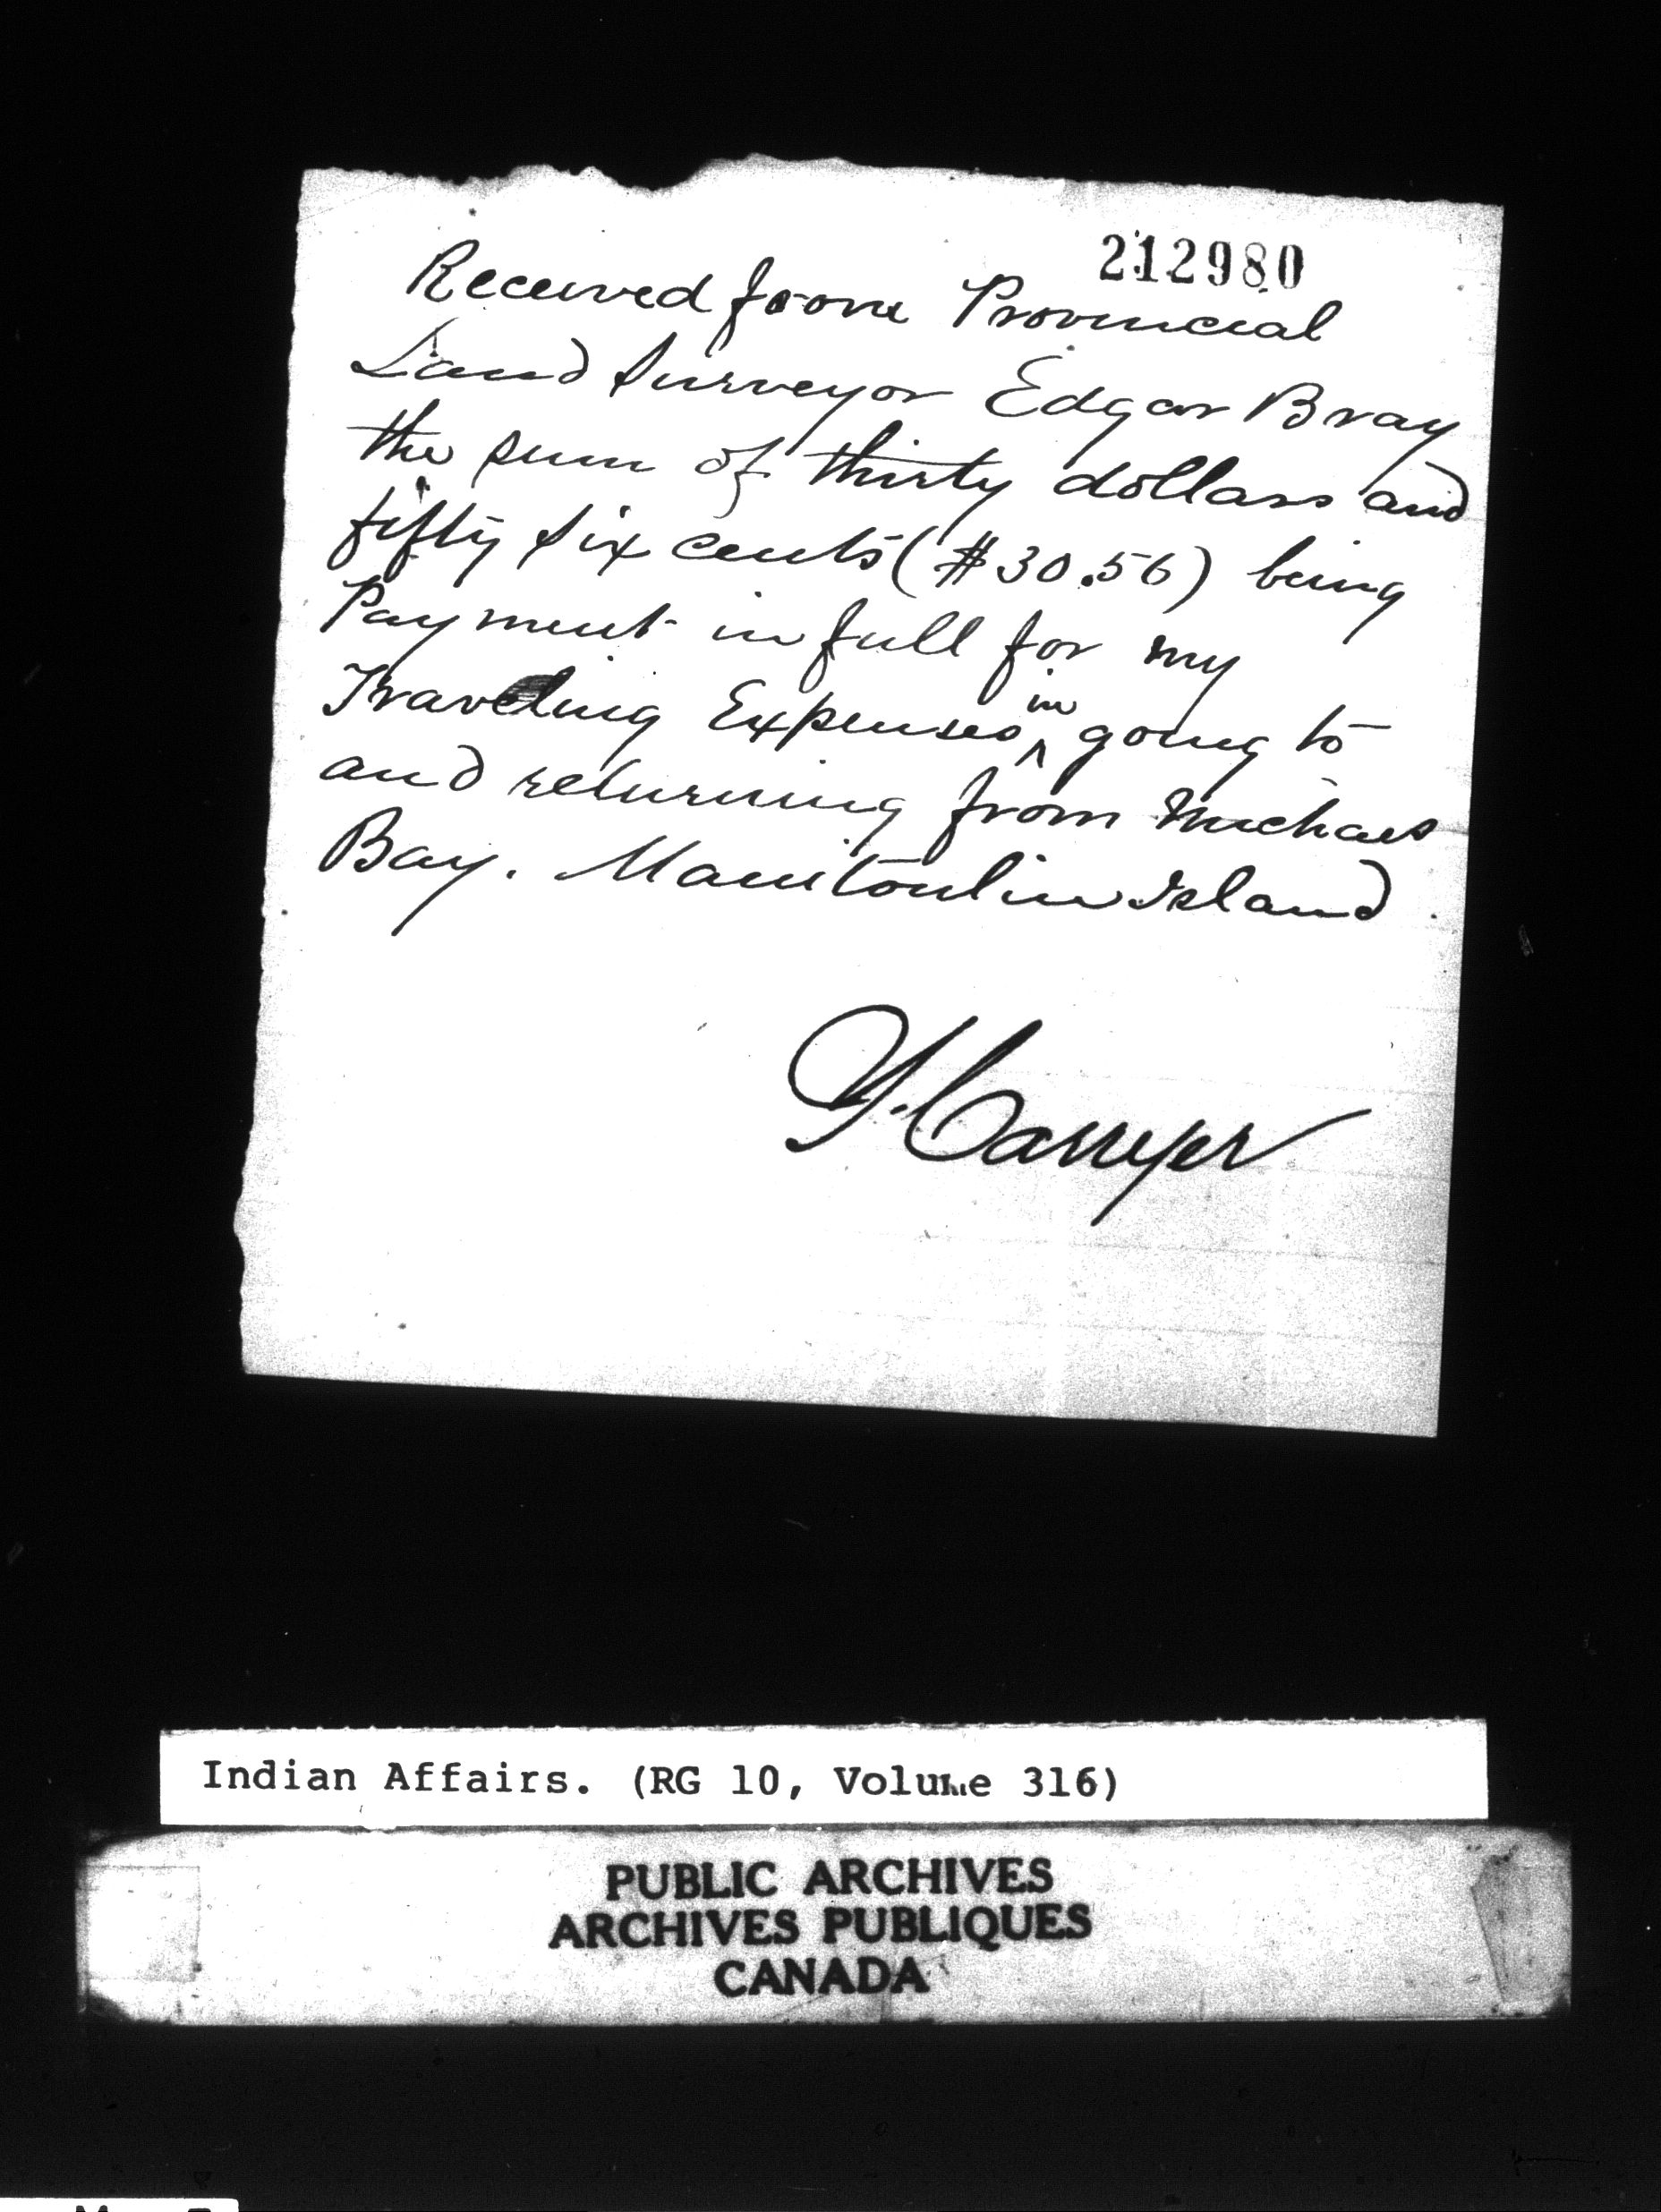 212980
Received from Provincial
Land Surveyor Edgar Bray
the sum of thirty dollars and
fifty six cents ($30.56) being
Payment in full for my
Traveling Expenses in going to
and returning from Michaels
Bay. Manitoulin Island.
Indian Affairs. (RG 10, Volume 316)
PUBLIC ARCHIVES
ARCHIVES PUBLIQUES
CANADA